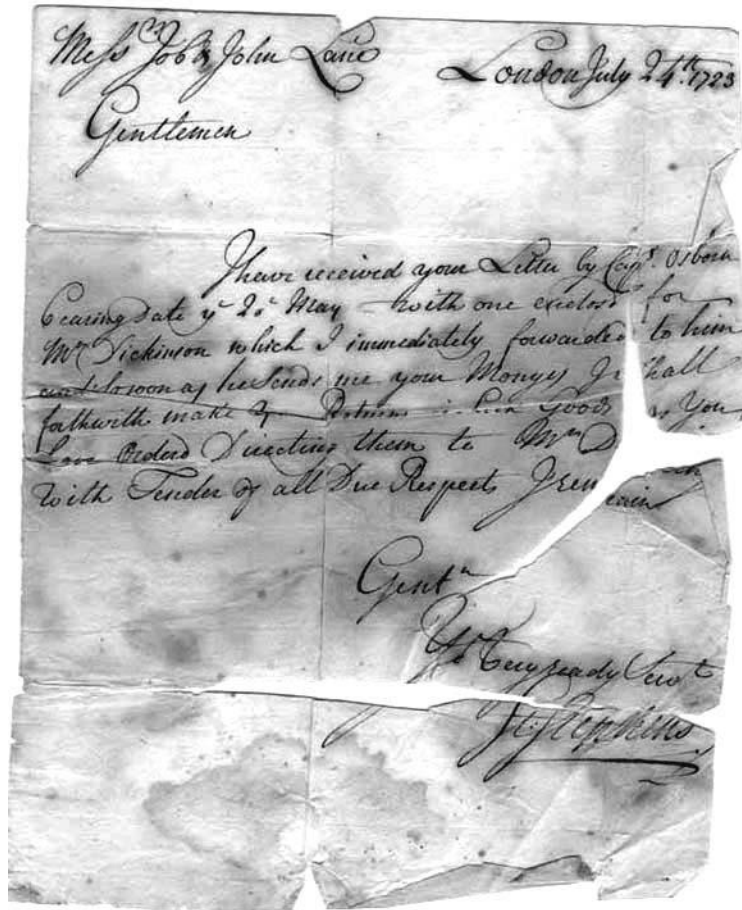 Messrs Job & John Lane
London July 24th. 1723
Gentlemen
I have received your Letter by Capt. Osborn
bearing date ye 20 May with one enclosd for
Mr Dickinson which I immediately forwarded to him
and so soon as he Sends me your Moneys I shall
forthwith make Returns in Such Goods as You
have Orderd Directing them to Mr D
With Tender of all Due Respects I remain
Gentn
Yr Very ready Servt